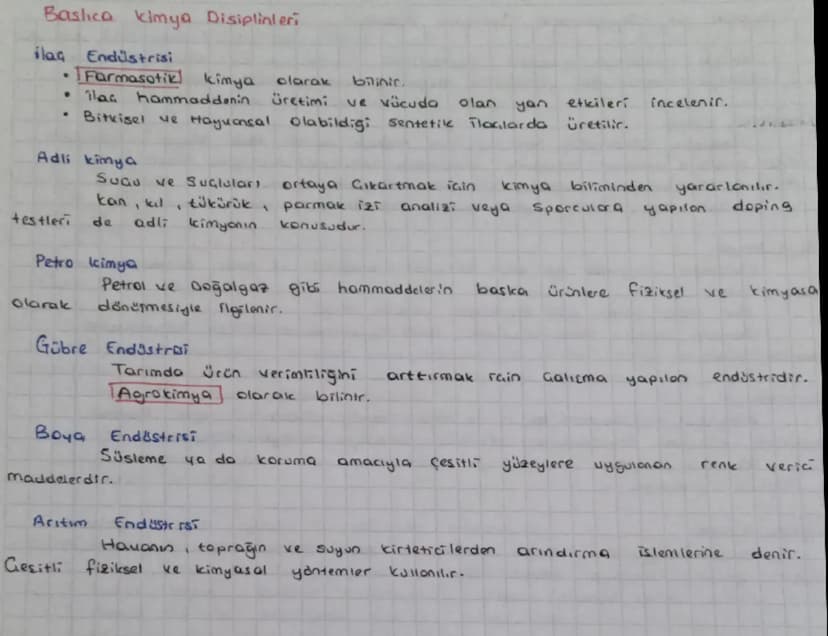 Başlıca Kimya Disiplinleri
ilaç Endüstrisi
• Farmasotik kimya olarak bilinir.
• ilaç hammaddenin üretimi ve vücuda olan yan etkileri incelenir.
• Bitkisel ve Hayvansal olabildiği sentetik ilaçlarda üretilir.
Adli kimya
Suçu ve Suçluları ortaya Çıkartmak için kimya biliminden yararlanılır.
kan, kıl, tükürük, parmak izi analizi veya sporculara yapılan doping
testleri de adli kimyanın konusudur.
Petro kimya
Petrol ve Doğalgaz gibi hammaddelerin başka ürünlere fiziksel ve kimyasa
olarak dönüşmesiyle ilgilenir.
Gübre Endüstrisi
Tarımda ürün verimliliğini arttırmak için Çalışma yapılan endüstridir.
Agrokimya olarak bilinir.
Boya Endüstrisi
Süsleme ya da koruma amacıyla çeşitli yüzeylere uygulanan renk verici
maddelerdir.
Arıtım Endüstrisi
Havanın, toprağın ve suyun kirleticilerden arındırma işlemlerine denir.
Çeşitli fiziksel ve kimyasal yöntemler kullanılır.